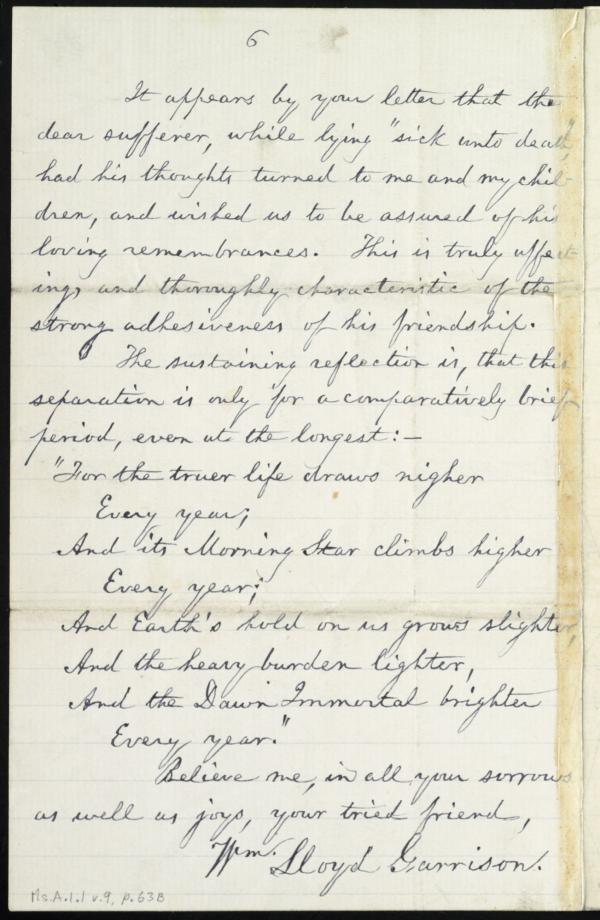 6
It appears by your letter that the
dear sufferer, while lying "sick unto death",
had his thoughts turned to me and my chil-
dren, and wished us to be assured of his
loving remembrances. This is truly affect-
ing, and thoroughly characteristic of the
strong adhesiveness of his friendship.
The sustaining reflection is, that this
separation is only for a comparatively brief
period, even at the longest:—
"For the truer life draws nigher
Every year;
And its Morning Star climbs higher
Every year;
And Earth's hold on us grows slighter,
And the heavy burden lighter,
And the Dawn Immortal brighter
Every year."
Believe me, in all your sorrows
as well as joys, your tried friend,
Wm. Lloyd Garrison.
Ms.A.1.1 v.9, p.63B